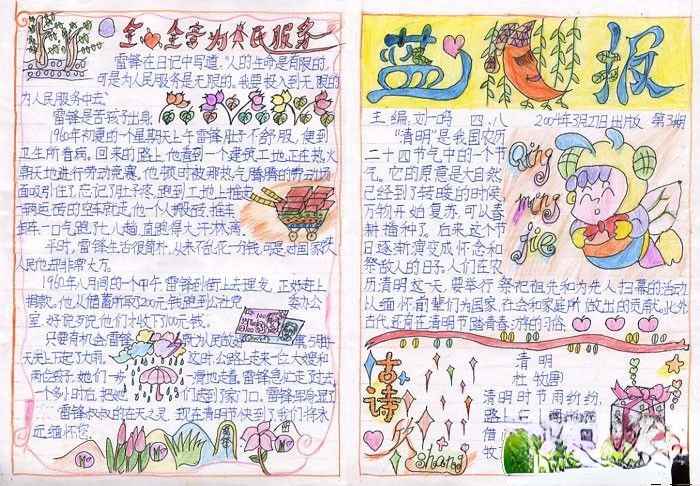 全心全意为人民服务
雷锋在日记中写道:"人的生命是有限的,
可是为人民服务是无限的。我要投入到无限的
为人民服务中去。
雷锋是苦孩子出身
1960年初夏的一个星期天上午雷锋肚子不舒服,便到
卫生所看病。回来的路上,他看到一个建筑工地正在热火
朝天地进行劳动竞赛。他顿时被那热气腾腾的劳动场
面吸引住了,忘记了肚子疼。跑到工地上推走
一辆运砖的空车就走。他一个人搬砖、推车
一口气跑了七八趟,直跑得大汗淋漓。
平时,雷锋生活很简朴,从来不乱花一分钱,可是对国家
人民他却非常大方。
1960年八月间的一个中午,雷锋到街上去理发,正好赶上
捐款。他从储蓄所取了200元钱跑到公社党 委办公
室。好说歹说他们才收下100元钱。
只要有机会雷锋
天天上下起了大雨。 这时,公路上走来一位大嫂和
两个孩子,她们一步 滑地走着。雷锋急忙走了过去
一个多小时后,把她 们送到了家门口。雷锋浑身湿了
雷锋叔叔的在天之灵,现在清明节快到了我们将永
远缅怀您。
蓝月报
主编:刘一鸣 四、八 2009年3月27日出版 第3期
"清明"是我国农历
二十四节气中的一个节
气。它的原意是大自然
已经到了转暖的时候,
万物开始复苏,可以春
耕播种了。后来,这个节
日逐渐演变成怀念和
祭敌人的日子。人们在农
历清明这一天,要举行祭祀祖先和为先人扫墓的活动
以缅怀前辈们为国家、社会和家庭所做出的贡献。此外
古代,还有在清明节踏青春游的习俗。
Qing
ming
jie
古诗
欣
shang
清明
杜牧
清明时节雨纷纷,
路上
借
牧